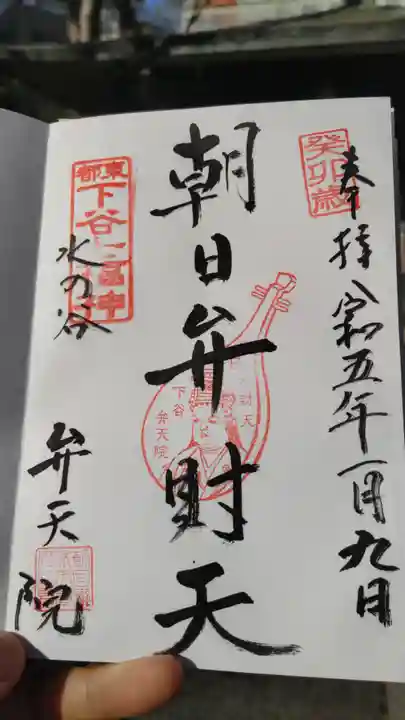 癸卯歳
奉拝 令和五年一月九日
朝日弁財天
下谷
弁天院
東都
下谷七福神
水の谷
弁天院